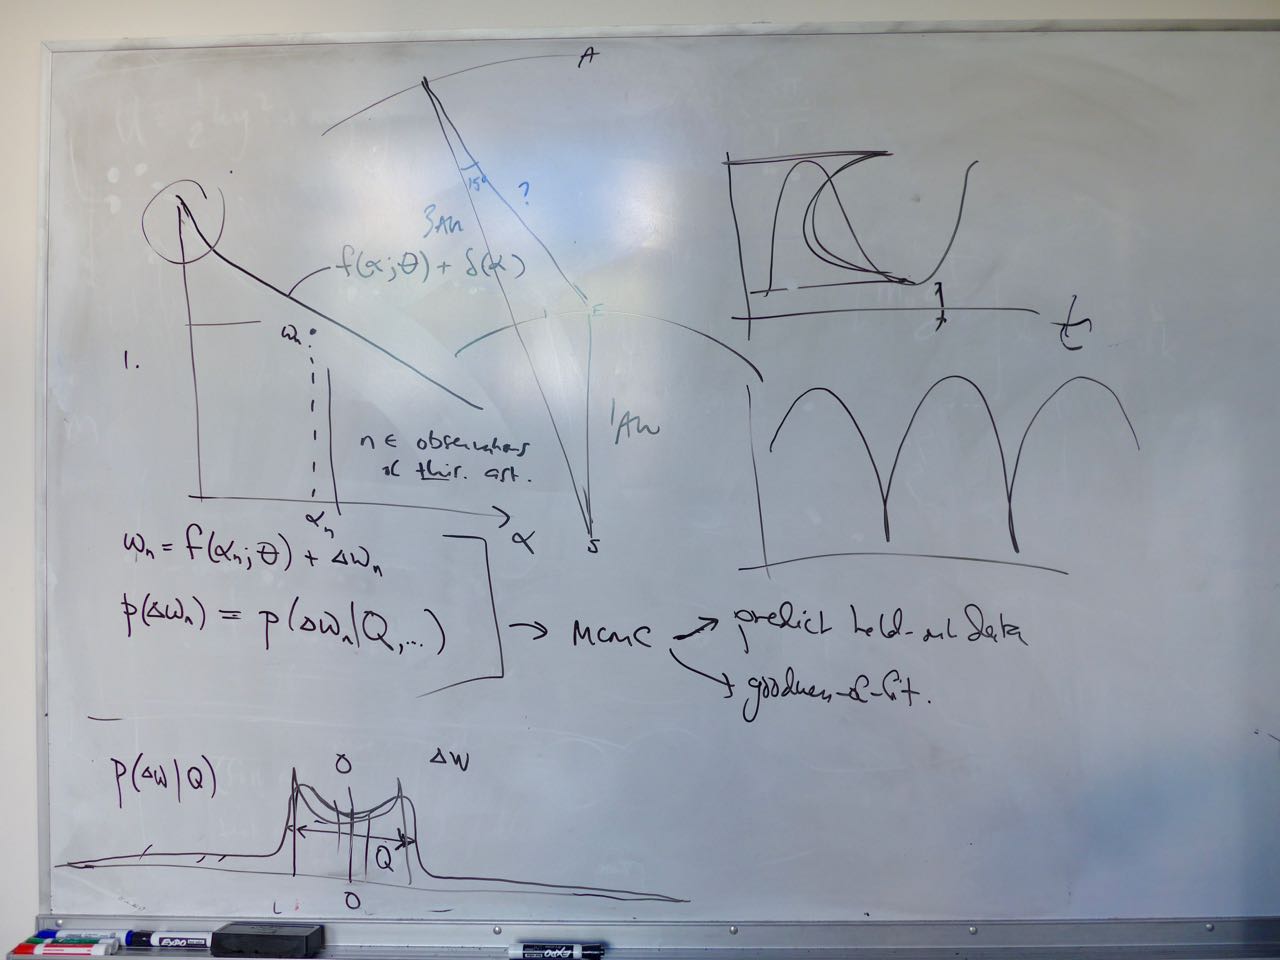 A
15°
?
3AU
f(α;θ) + δ(α)
E
1AU
S
1.
ωn
n ∈ observations
of this ast.
αn
α
t
ωn = f(αn;θ) + Δωn
p(Δωn) = p(Δωn|Q,...)
→ MCMC
predict held-out data
goodness-of-fit.
p(Δω|Q)
0
Δω
Q
0
EXPO
EXPO